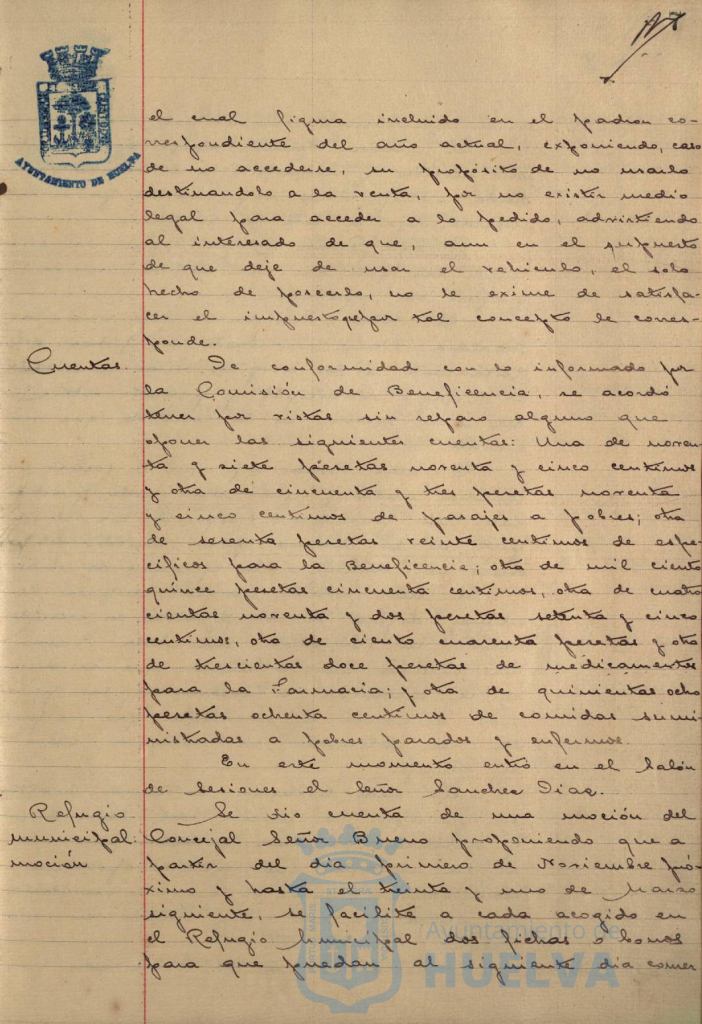 AYUNTAMIENTO DE HUELVA
el cual figura incluido en el padron co-
rrespondiente del año actual, exponiendo, caso
de no accederse, su propósito de no usarlo
destinandolo a la venta, por no existir medio
legal para acceder a lo pedido, advirtiendo
al interesado de que, aun en el supuesto
de que deje de usar el vehiculo, el solo
hecho de poseerlo, no le exime de satisfa-
cer el impuesto que por tal concepto le corres-
ponde.
Cuentas.
De conformidad con lo informado por
la Comisión de Beneficencia, se acordó
tener por vistas sin reparo alguno que
oponer las siguientes cuentas: Una de noven-
ta y siete pesetas noventa y cinco centimos
y otra de cincuenta y tres pesetas noventa
y cinco centimos de pasajes a pobres; otra
de sesenta pesetas veinte centimos de espe-
cificos para la Beneficencia; otra de mil ciento
quince pesetas cincuenta centimos, otra de cuatro
cientas noventa y dos pesetas setenta y cinco
centimos, otra de ciento cuarenta pesetas y otra
de trescientas doce pesetas de medicamentos
para la Farmacia; y otra de quinientas ocho
pesetas ochenta centimos de comidas sumi-
nistradas a pobres parados y enfermos.
En este momento entró en el Salón
de sesiones el Señor Sanchez Diaz.
Refugio
municipal:
moción
Se dio cuenta de una moción del
Concejal Señor Bueno proponiendo que a
partir del dia primero de Noviembre pró-
ximo y hasta el treinta y uno de Marzo
siguiente, se facilite a cada acogido en
el Refugio Municipal dos fichas o bonos
para que puedan al siguiente dia comer
Ayuntamiento de
HUELVA